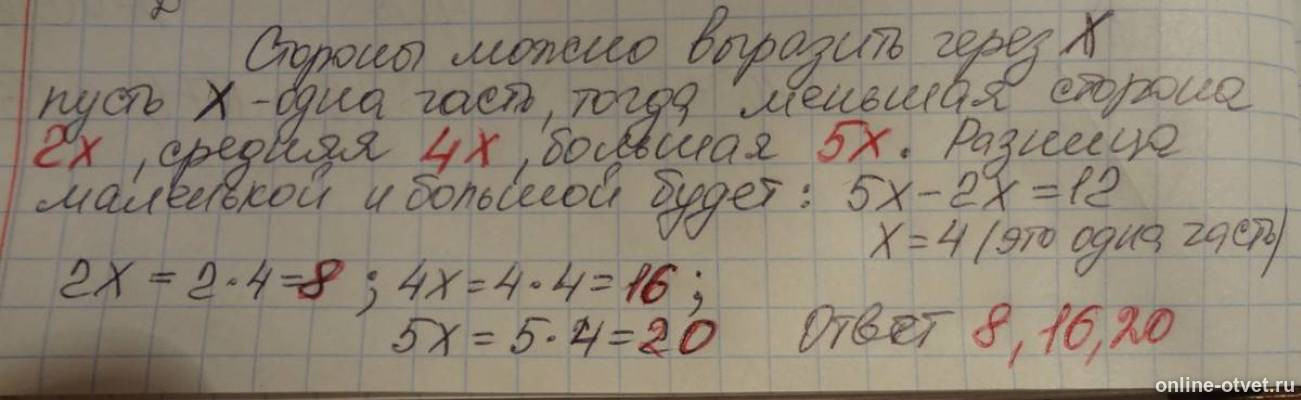 Стороны можно выразить через X
пусть X - одна часть, тогда меньшая сторона
2x, средняя 4x, большая 5x. Разница
маленькой и большой будет: 5x - 2x = 12
x = 4 (это одна часть)
2x = 2·4 = 8; 4x = 4·4 = 16;
5x = 5·4 = 20 Ответ 8, 16, 20
online-otvet.ru